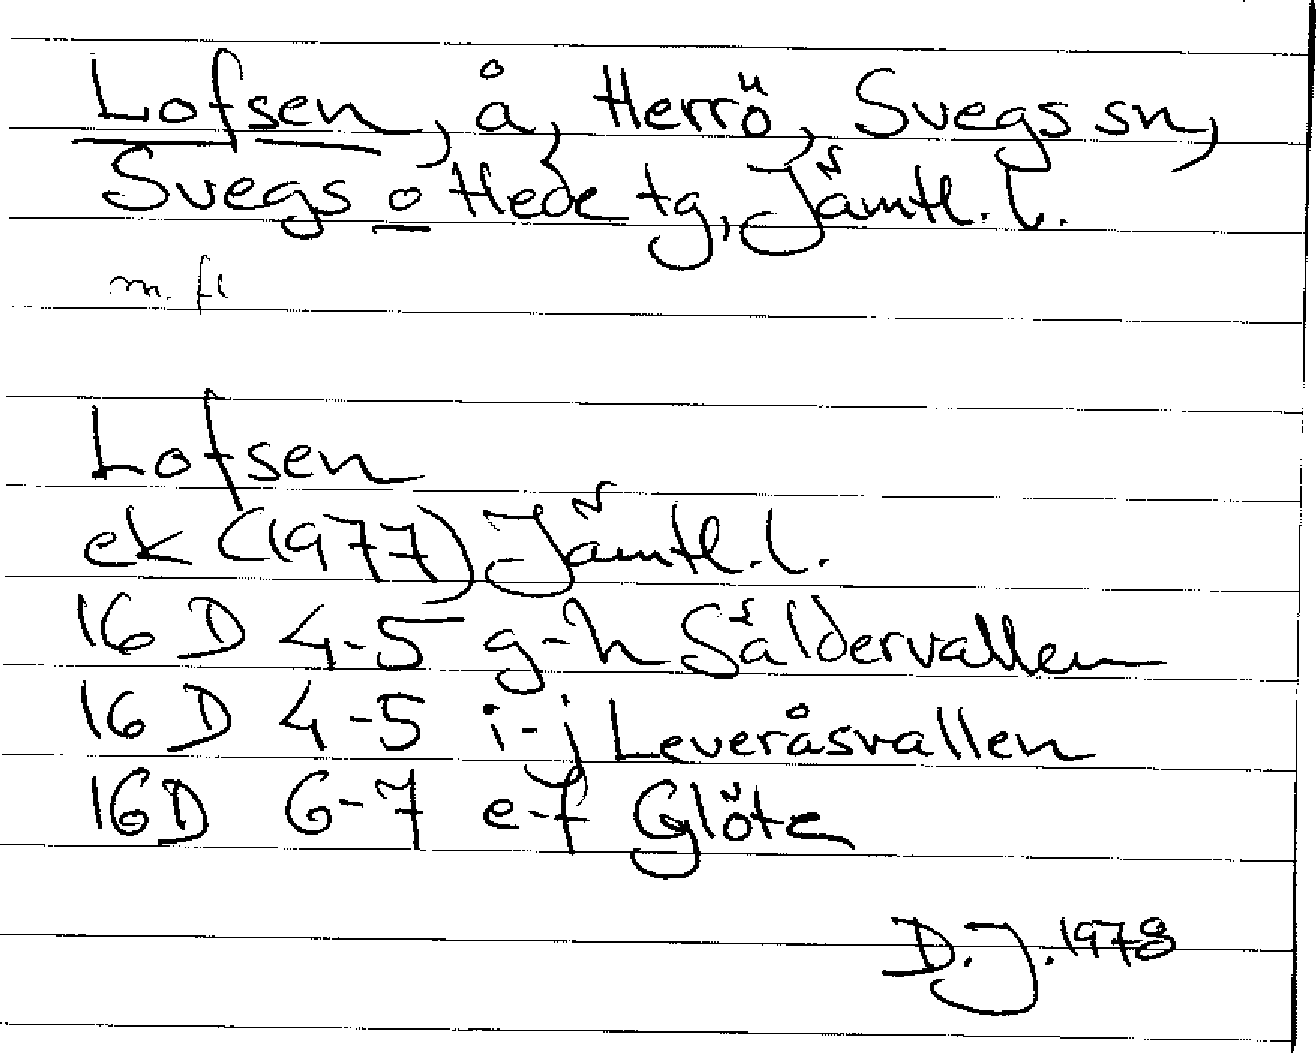 Lofsen, å, Herrö, Svegs sn,
Svegs o Hede tg, Jämtl. l.
m. fl
Lofsen
ek (1977) Jämtl. l.
16 D 4-5 g-h Såldervallen
16 D 4-5 i-j Leveråsvallen
16D 6-7 e-f Glöte
D.J. 1978